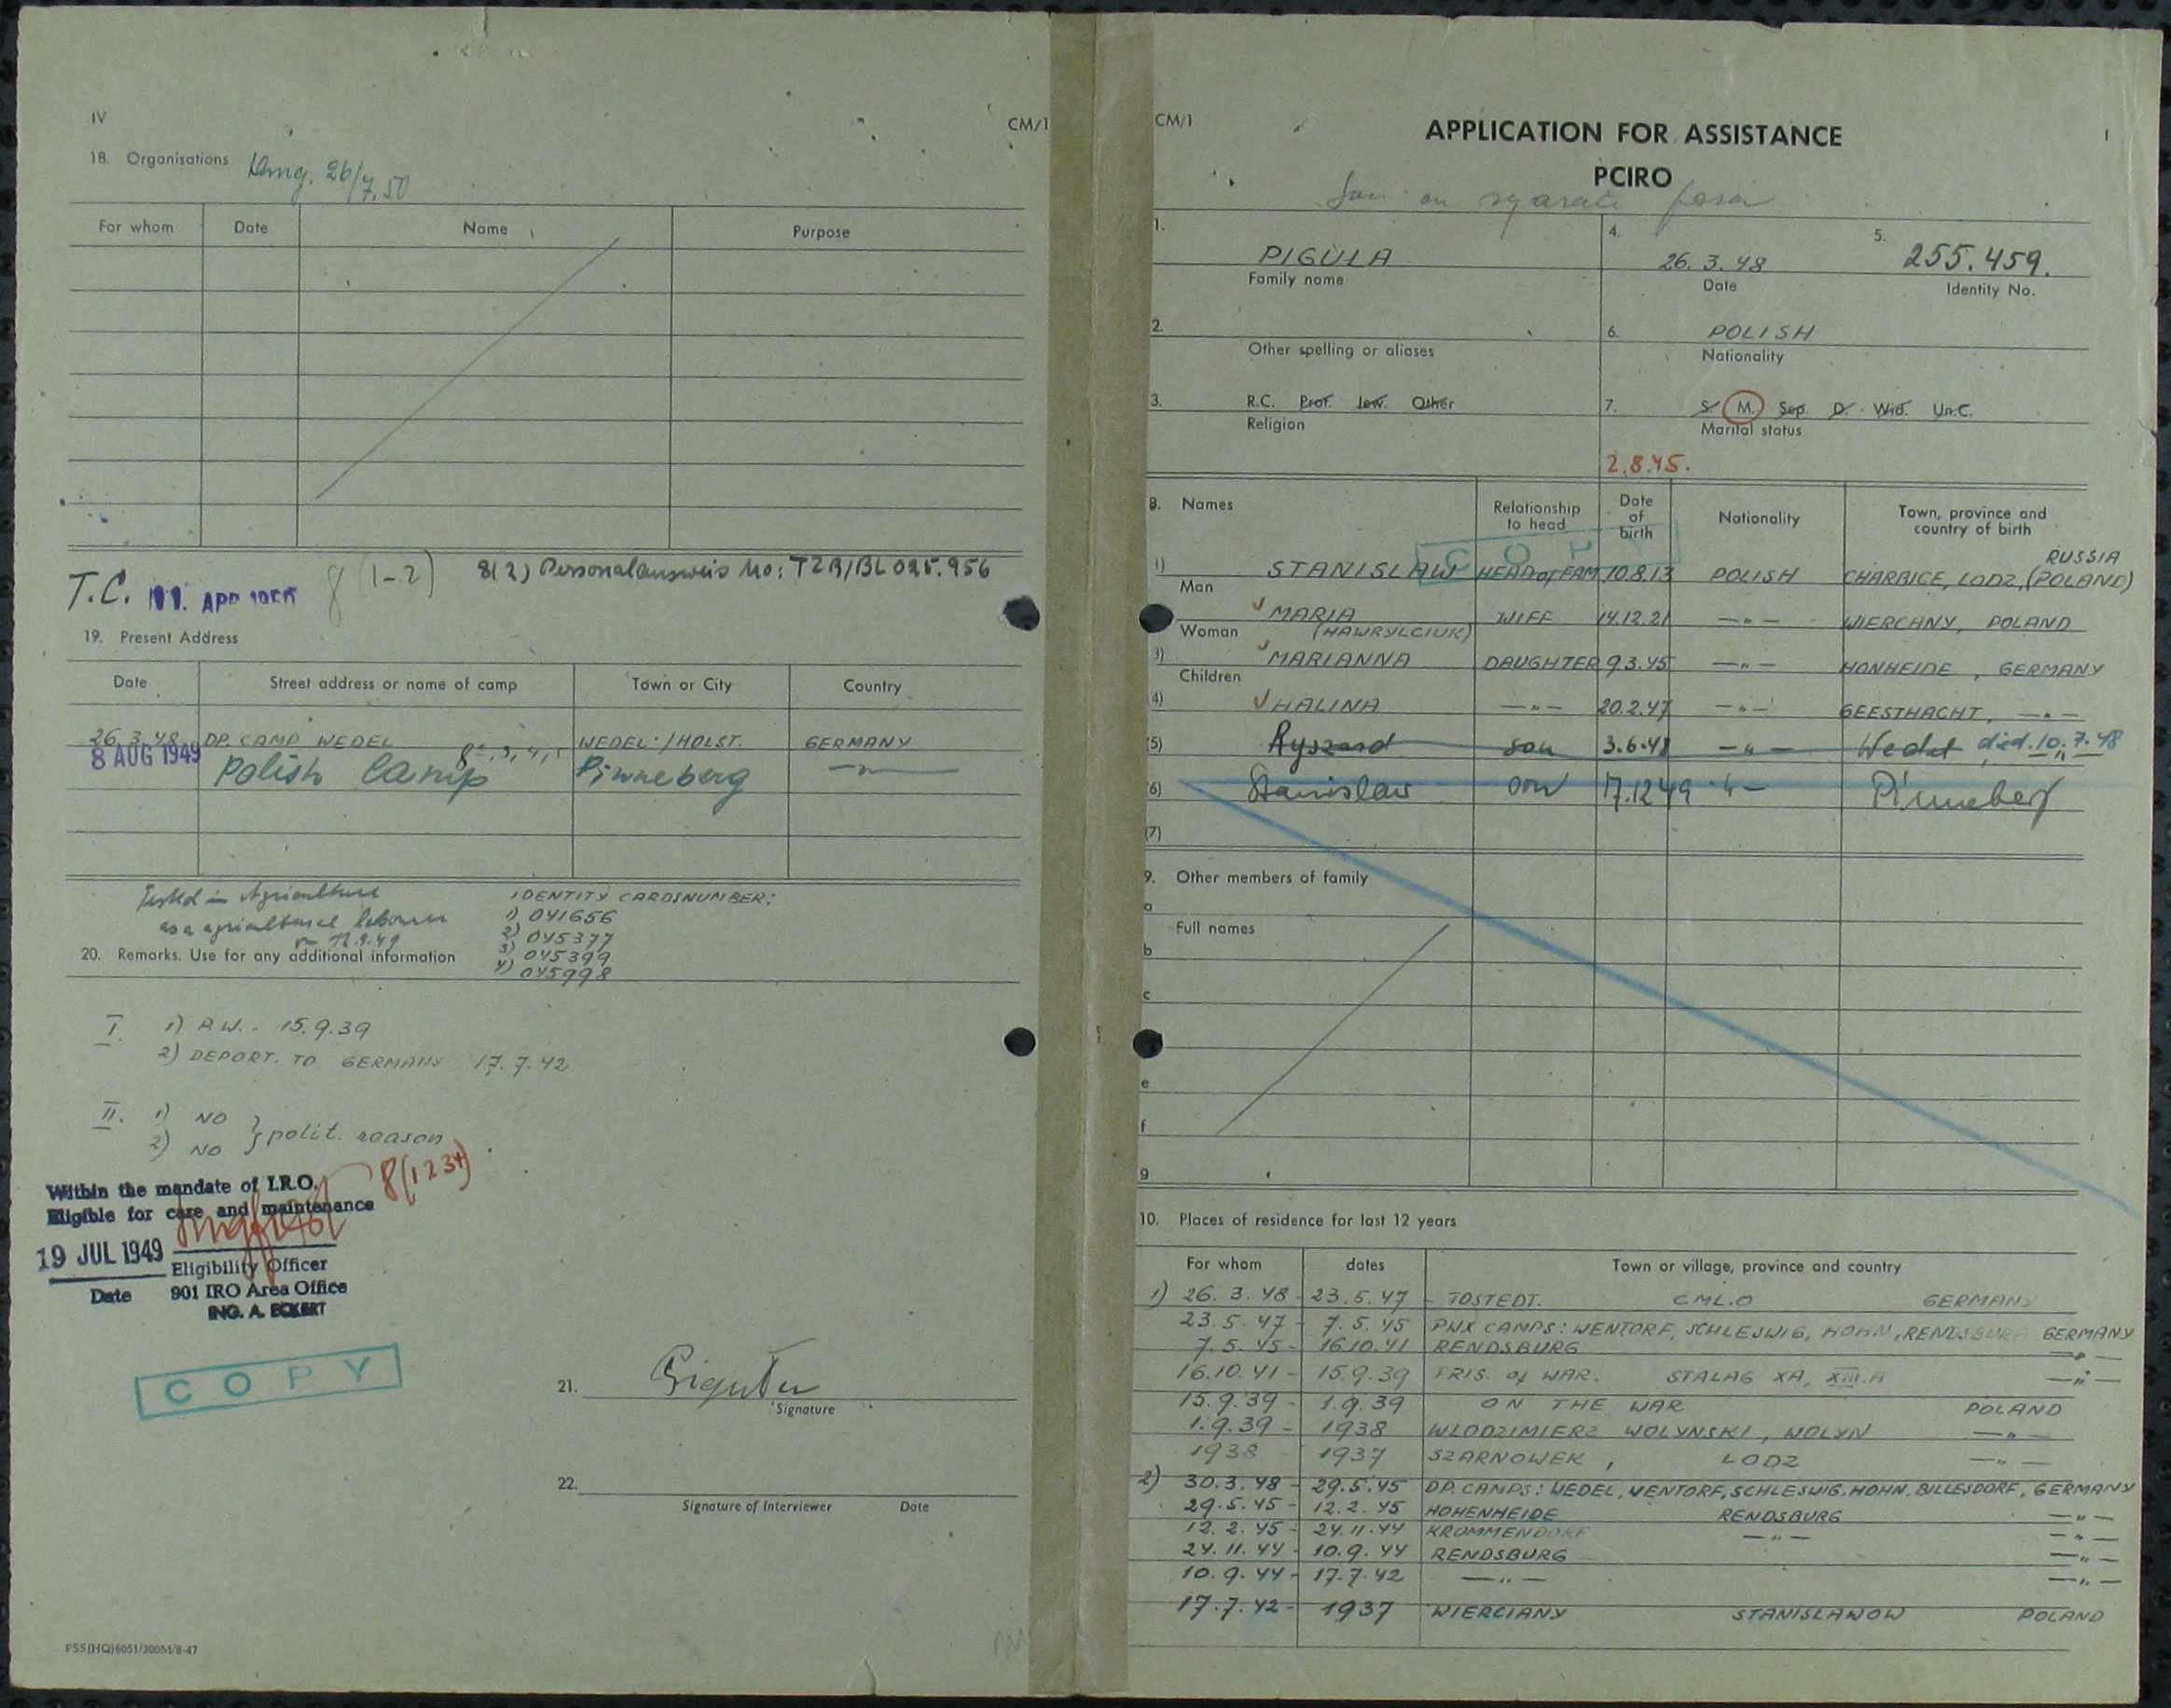 IV
CM/1
18. Organisations 26/7.50
For whom Date Name Purpose
T.C. 11. APR 8(1-2) 8(2) Personalausweis No: TZA/BL 025.956
19. Present Address
Date Street address or name of camp Town or City Country
26.3.48 DP. CAMP WEDEL WEDEL /HOLST. GERMANY
8 AUG 1949 Polish Camp Pinneberg — " —
Tested in Agriculture
as a agricultural labourer
IDENTITY CARDSNUMBER:
1) 041656
2) 045377
3) 045399
4) 045998
20. Remarks. Use for any additional information
I. 1) P.W. - 15.9.39
2) DEPORT. TO GERMANY 17.7.42
II. 1) NO
2) NO } polit. reason
8(1234)
Within the mandate of I.R.O.
Eligible for care and maintenance
19 JUL 1949
Date
Eligibility Officer
901 IRO Area Office
ING. A. ECKERT
COPY
21. Signature
22. Signature of Interviewer Date
PSS(HQ)6051/300M/8-47
CM/1
APPLICATION FOR ASSISTANCE
I
PCIRO
Son on separate form
1. PIGULA
Family name
4. 26.3.48
Date
5. 255.459.
Identity No.
2. Other spelling or aliases
6. POLISH
Nationality
3. R.C. Prot. Jew. Other
Religion
7. S. M. Sep. D. Wid. Un.C.
Marital status
2.8.45.
8. Names Relationship to head Date of birth Nationality Town, province and country of birth
1) Man STANISLAW HEAD of FAM. 10.8.13 POLISH CHARBICE, LODZ, (POLAND) RUSSIA
Woman MARIA (HAWRYLCIUK) WIFE 14.12.21 — " — WIERCHNY, POLAND
3) Children MARIANNA DAUGHTER 9.3.45 — " — HONHEIDE, GERMANY
4) HALINA — " — 20.2.47 — " — GEESTHACHT, — " —
(5) Ryszard son 3.6.48 — " — Wedel died. 10.7.48 — " —
(6) Stanislaw son 17.12.49 — " — Pinneberg
(7)
9. Other members of family
a
Full names
b
c
e
f
g
10. Places of residence for last 12 years
For whom dates Town or village, province and country
1) 26.3.48 - 23.5.47 - TOSTEDT. GERMANY
23.5.47 - 7.5.45 PWX CAMPS: WENTORF, SCHLESWIG, HOHN, RENDSBURG GERMANY
7.5.45 - 16.10.41 RENDSBURG — " —
16.10.41 - 15.9.39 PRIS. of WAR. STALAG XA, XIII.A — " —
15.9.39 - 1.9.39 ON THE WAR POLAND
1.9.39 - 1938 WLODZIMIERZ WOLYNSKI, WOLYN — " —
1938 1937 SZARNOWEK, LODZ — " —
2) 30.3.48 - 29.5.45 DP. CAMPS: WEDEL, WENTORF, SCHLESWIG, HOHN, BILLESDORF, GERMANY
29.5.45 - 12.2.45 HOHENHEIDE RENDSBURG — " —
12.2.45 - 24.11.44 KROMMENDORF — " — — " —
24.11.44 - 10.9.44 RENDSBURG — " —
10.9.44 - 17.7.42 — " — — " —
17.7.42 - 1937 WIERCIANY STANISLAWOW POLAND